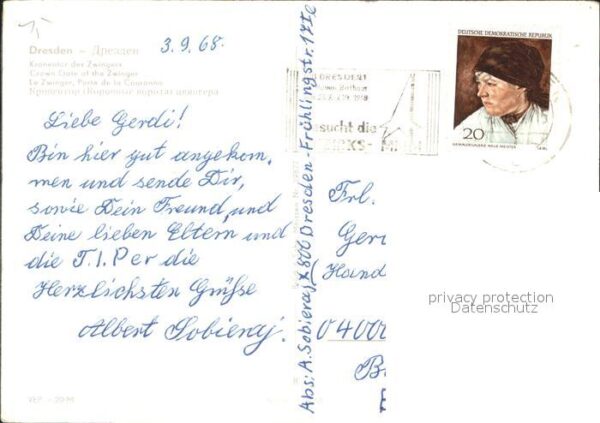 Dresden – Дрезден
3.9.68.
Kronentor des Zwingers
Crown Gate of the Zwinger
Le Zwinger, Porte de la Couronne
Liebe Gerdi!
Bin hier gut angekom,
men und sende Dir,
sowie Dein Freund, und
Deine lieben Eltern und
die T.I.Per die
Herzlichsten Grüße
Albert Sobieraj.
Abs: A. Sobieraj X 800 Dresden-Frühlingstr.
DEUTSCHE DEMOKRATISCHE REPUBLIK
20
DRESDEN
sucht die
Frl.
Ger
Hand
privacy protection
Datenschutz
0400
B